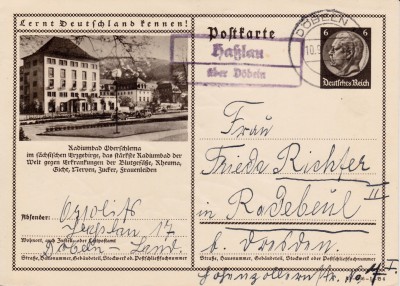 Lernt Deutschland kennen!
Postkarte
Haßlau
über Döbeln
DÖBELN
10.9
6 6
Deutsches Reich
Radiumbad Oberschlema
im sächsischen Erzgebirge, das stärkste Radiumbad der
Welt gegen Erkrankungen der Blutgefäße, Rheuma,
Gicht, Nerven, Zucker, Frauenleiden
Absender:
Haßlau 17
Wohnort, auch Zustell- oder Leitpostamt
Döbeln-Land.
Straße, Hausnummer, Gebäudeteil, Stockwerk od. Postschließfachnummer
Frau
Frieda Richter
in Radebeul
b. Dresden.
Straße, Hausnummer, Gebäudeteil, Stockwerk oder Postschließfachnummer
Hohenzollernstr.